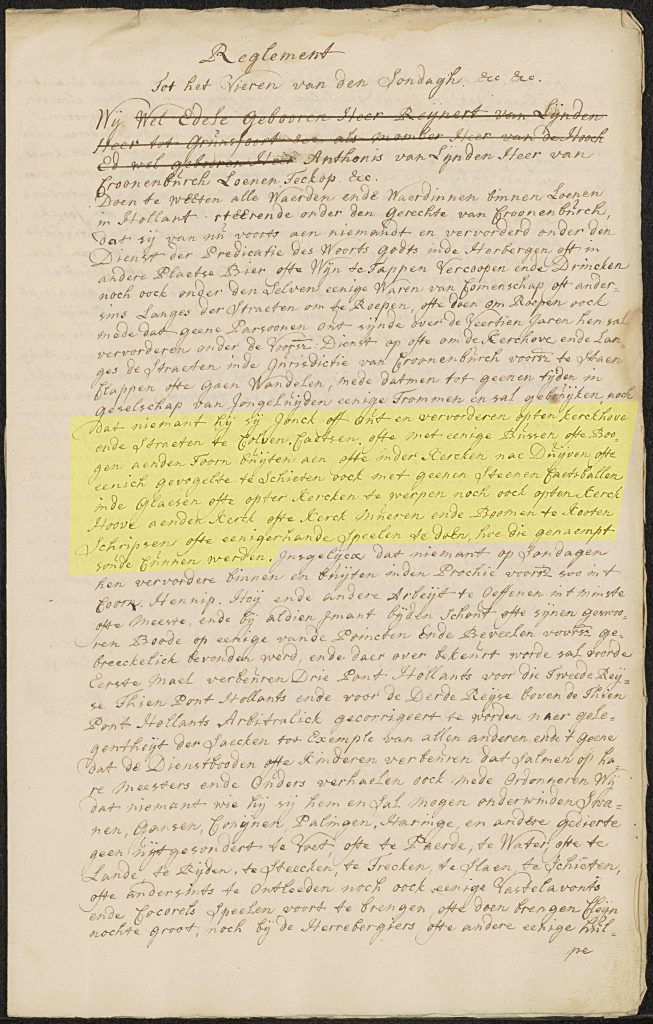 Reglement
Tot het Vieren van den Sondagh. &c &c.
Wij Wel Edele Gebooren Heer Reijnert van Lijnden
Heer tot Grunsfoort &c als momber Heer van de Hooch
Ed wel geboren Heer Anthonis van Lijnden Heer van
Croonenburch Loenen Teckop. &c.
Doen te weeten alle Waerden ende Waerdinnen binnen Loenen
in Hollant steerende onder den Gerechte van Croonenburch,
dat sij van nu voorts aen niemandt en vervorderd onder den
Dienst der Predicatie des Woorts Godts inde Herbergen oft in
andere Plaetse Bier ofte Wijn te Tappen Vercoopen ende Drincken
noch oock onder den Selven eenige Waren van Comenschap oft ander-
sins Langes der Straeten om te Roepen, ofte doen om Roepen oock
mede dat geene Parsoonen Out sijnde over de Veertien Jaren hen sal
vervorderen onder de Voorsz Dienst op ofte om de Kerckhove ende Lan-
ges de Straeten inde Jurisdictie van Croonenburch voorsz te Staen
Clappen ofte Gaen Wandelen, mede datmen tot geenen tijden in
geselschap van Jongeluijden eenige Trommen en sal gebruijken noch
Dat niemant hij sij Jonck off Out en vervorderen opten kerckhove
ende Straeten te Colven. Caetsen. ofte met eenige Bussen ofte Boo-
gen aenden Toorn buijten aen ofte inder Kercken nae Duijven ofte
eenich gevogelte te Schieten oock met geenen Steenen Caetsballen
inde Glaesen ofte opter Kercken te werpen noch oock opten Kerck
Hoove aenden Kerck ofte Kerck Mueren ende Boomen te Kosten
Schripsen ofte eenigerhande Speelen te doen, hoe die genaempt
soude Cunnen werden. Insgelijcx dat niemant op Sondagen
hen vervordere binnen en buijten inden Prochie voorsz soo int
Coorn, Hennip. Hoij ende andere Arbeijt te Oeffenen int minste
ofte Meeste, ende bij aldien Jmant bijden Schout ofte sijnen geswoo-
ren Boode op eenige vande Poincten ende Beveelen voorsz ge-
breeckelick bevonden werd, ende daer over bekeurt worde sal voorde
Eerste Mael verbeuren Drie Pont Hollants voor die Tweede Reij-
se Thien Pont Hollants ende voor de Derde Reijse boven de Thien
Pont Hollants Arbitralick gecorrigeert te worden naer gele-
gentheijt der Saecken tot Exemple van allen anderen ende 't Geene
dat de Dienstbooden ofte Kinderen verbeuren dat salmen op ha-
re Meesters ende Ouders verhaelen oock mede Ordonneren Wij
dat niemant wie hij sij hem en sal mogen onderwinden Swa-
nen, Gansen, Conijnen, Palingen, Haringe, en andere gedierte
geen uijtgesondert te Voet, ofte te Paerde, te Water, ofte te
Lande, te Rijden, te Steecken, te Trecken, te Slaen, te Schieten,
ofte andersints te Ontleeden noch oock eenige Vastelavonts
ende Cocorels Speelen voort te brengen ofte doen brengen Cleijn
nochte groot, noch bij de Herrebergiers ofte andere eenige hul-
pe